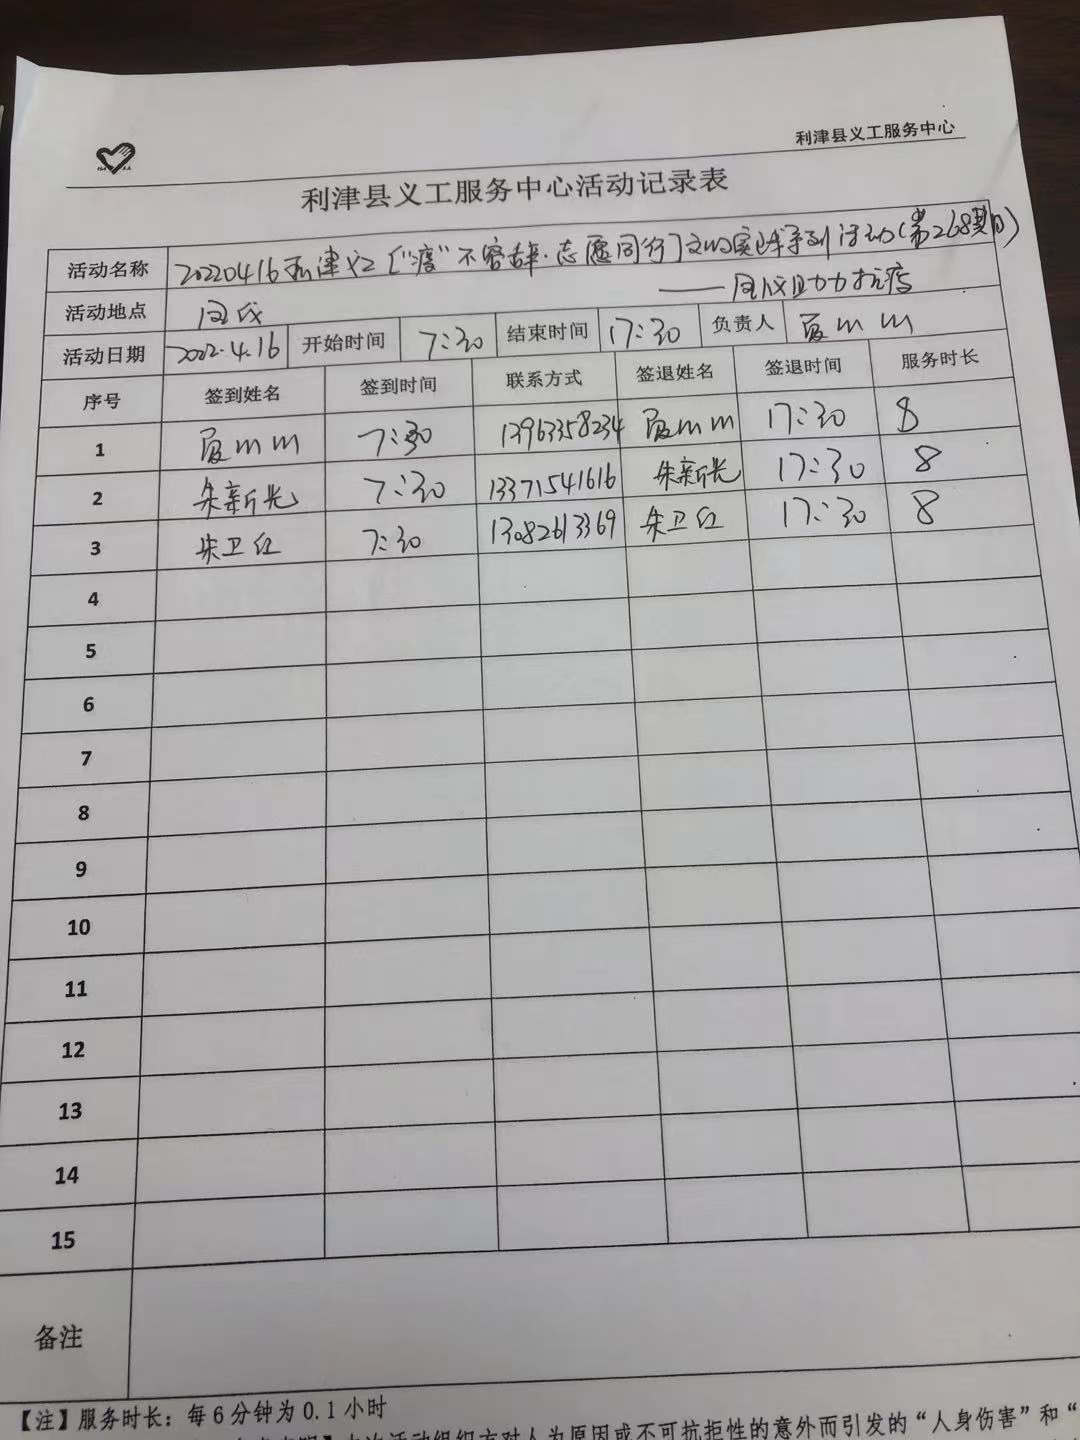 利津县义工服务中心
利津县义工服务中心活动记录表
活动名称 20220416利津义工["疫"不容辞·志愿同行]文明实践系列活动(第268期)
——助力抗疫
活动地点
活动日期 2022.4.16 开始时间 7:30 结束时间 17:30 负责人
序号 签到姓名 签到时间 联系方式 签退姓名 签退时间 服务时长
1 7:30 13963358234 17:30 8
2 朱新光 7:30 13371541616 朱新光 17:30 8
3 朱卫红 7:30 13082613369 朱卫红 17:30 8
4
5
6
7
8
9
10
11
12
13
14
15
备注
【注】服务时长：每6分钟为0.1小时
本次活动组织方对人为原因或不可抗拒性的意外而引发的“人身伤害”和“